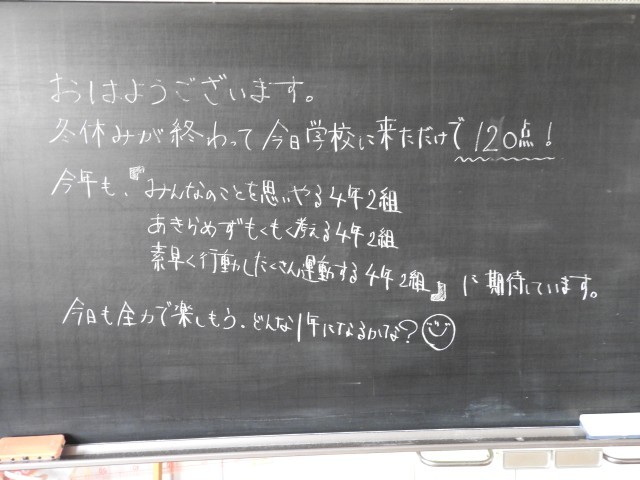 おはようございます。
冬休みが終わって今日学校に来ただけで120点!
今年も、『みんなのことを思いやる4年2組
あきらめずもくもく考える4年2組
素早く行動したくさん運動する4年2組』に期待しています。
今日も全力で楽しもう。どんな1年になるかな?